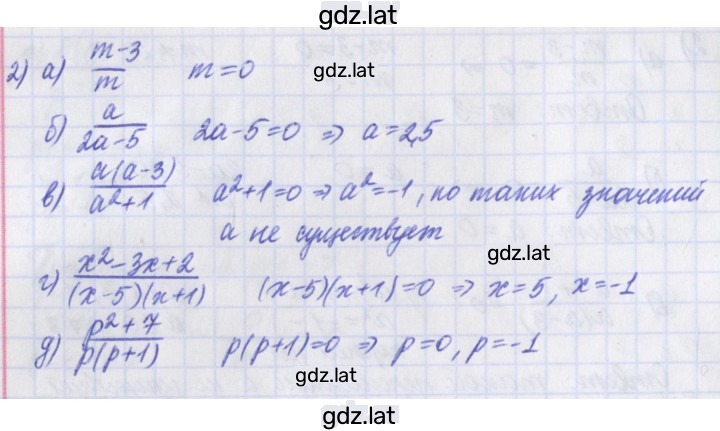 gdz.lat
2) а) (m-3)/m m=0 gdz.lat
б) a/(2a-5) 2a-5=0 => a=2,5
в) a(a-3)/(a²+1) a²+1=0 => a²=-1, но таких значений
а не существует gdz.lat
г) (x²-3x+2)/((x-5)(x+1)) (x-5)(x+1)=0 => x=5, x=-1
д) (p²+7)/(p(p+1)) p(p+1)=0 => p=0, p=-1
gdz.lat
gdz.lat